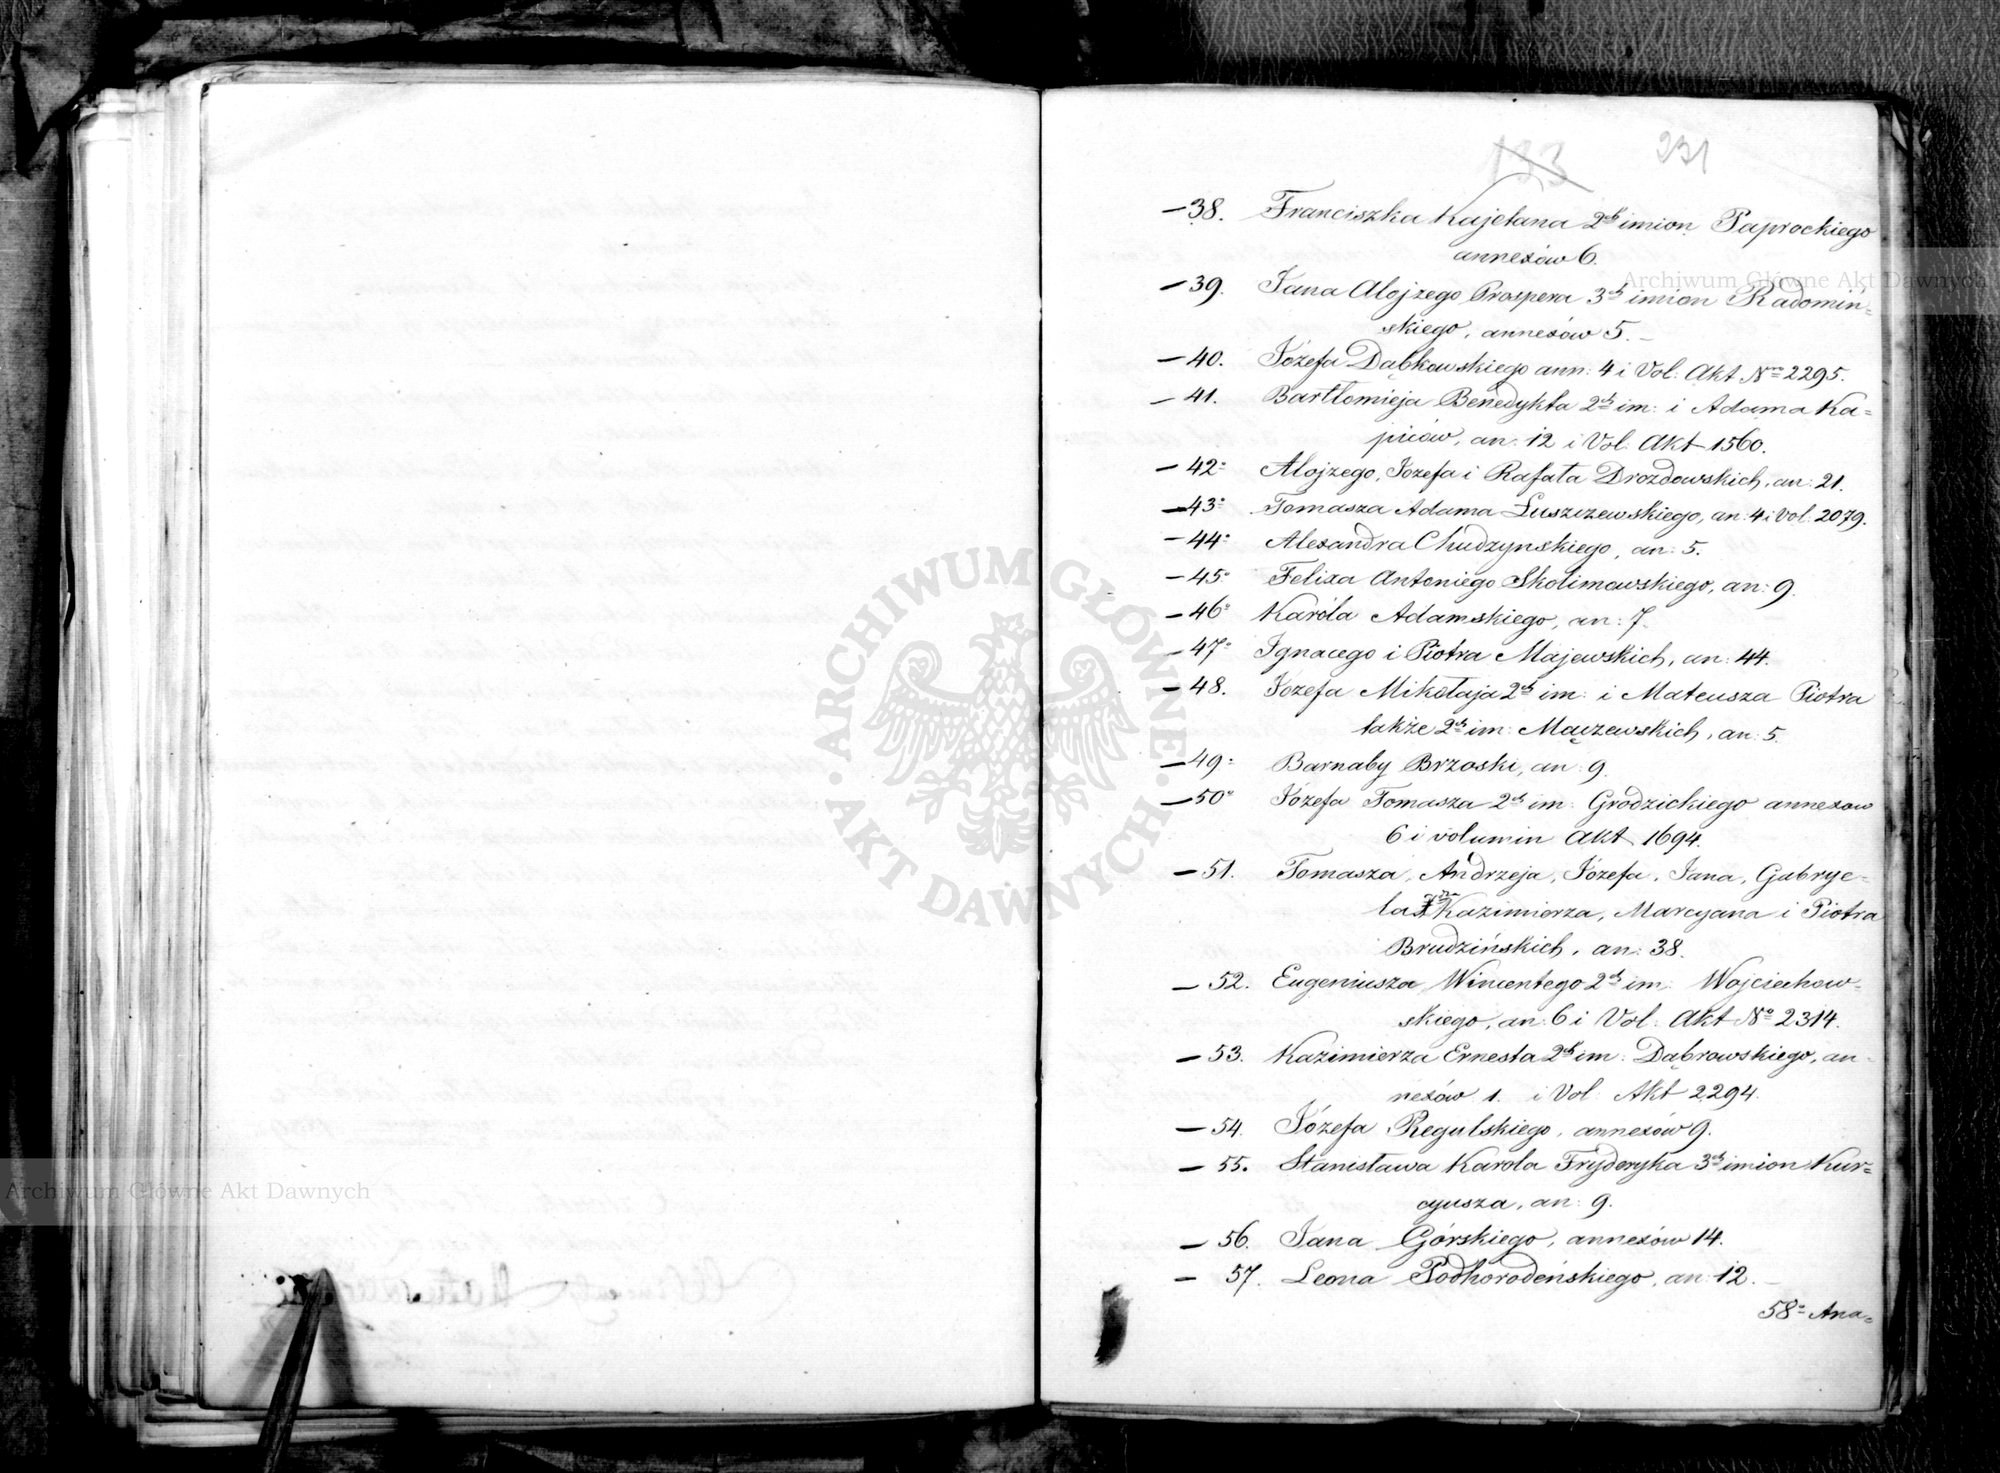 133 231
— 38. Franciszka Kajetana 2ch imion Paprockiego
annexów 6.
— 39. Jana Alojzego Prospera 3ch imion Radomiń=
skiego, annexów 5. —
— 40. Józefa Dąbkowskiego ann: 4 i Vol: Akt Nro 2295.
— 41. Bartłomieja Benedykta 2ch im: i Adama Ka=
piców, an: 12 i Vol: Akt 1560.
— 42. Alojzego, Józefa i Rafała Drozdowskich, an: 21.
— 43. Tomasza Adama Łuszczewskiego, an: 4 i Vol: 2079.
— 44. Alexandra Chudzynskiego, an: 5.
— 45. Felixa Antoniego Skolimowskiego, an: 9.
— 46. Karóla Adamskiego, an: 7.
— 47. Ignacego i Piotra Majewskich, an: 44.
— 48. Józefa Mikołaja 2ch im: i Mateusza Piotra
także 2ch im: Mączewskich, an: 5.
— 49. Barnaby Brzoski, an: 9.
— 50. Józefa Tomasza 2ch im: Grodzickiego annexow
6 i volumin Akt 1694.
— 51. Tomasza, Andrzeja, Józefa, Jana, Gabrye=
la Kazimierza, Marcyana i Piotra
Brudzińskich, an: 38.
— 52. Eugeniusza Wincentego 2ch im: Wojciechow=
skiego, an: 6 i Vol: Akt No 2314.
— 53. Kazimierza Ernesta 2ch im: Dąbrowskiego, an=
nexów 1. i Vol: Akt 2294.
— 54. Józefa Regulskiego, annexów 9.
— 55. Stanisława Karola Fryderyka 3ch imion Kur=
cyusza, an: 9.
— 56. Jana Górskiego, annexów 14.
— 57. Leona Podhorodeńskiego, an: 12. —
58. Ana=
Archiwum Główne Akt Dawnych
ARCHIWUM GŁÓWNE · AKT DAWNYCH ·
Archiwum Główne Akt Dawnych